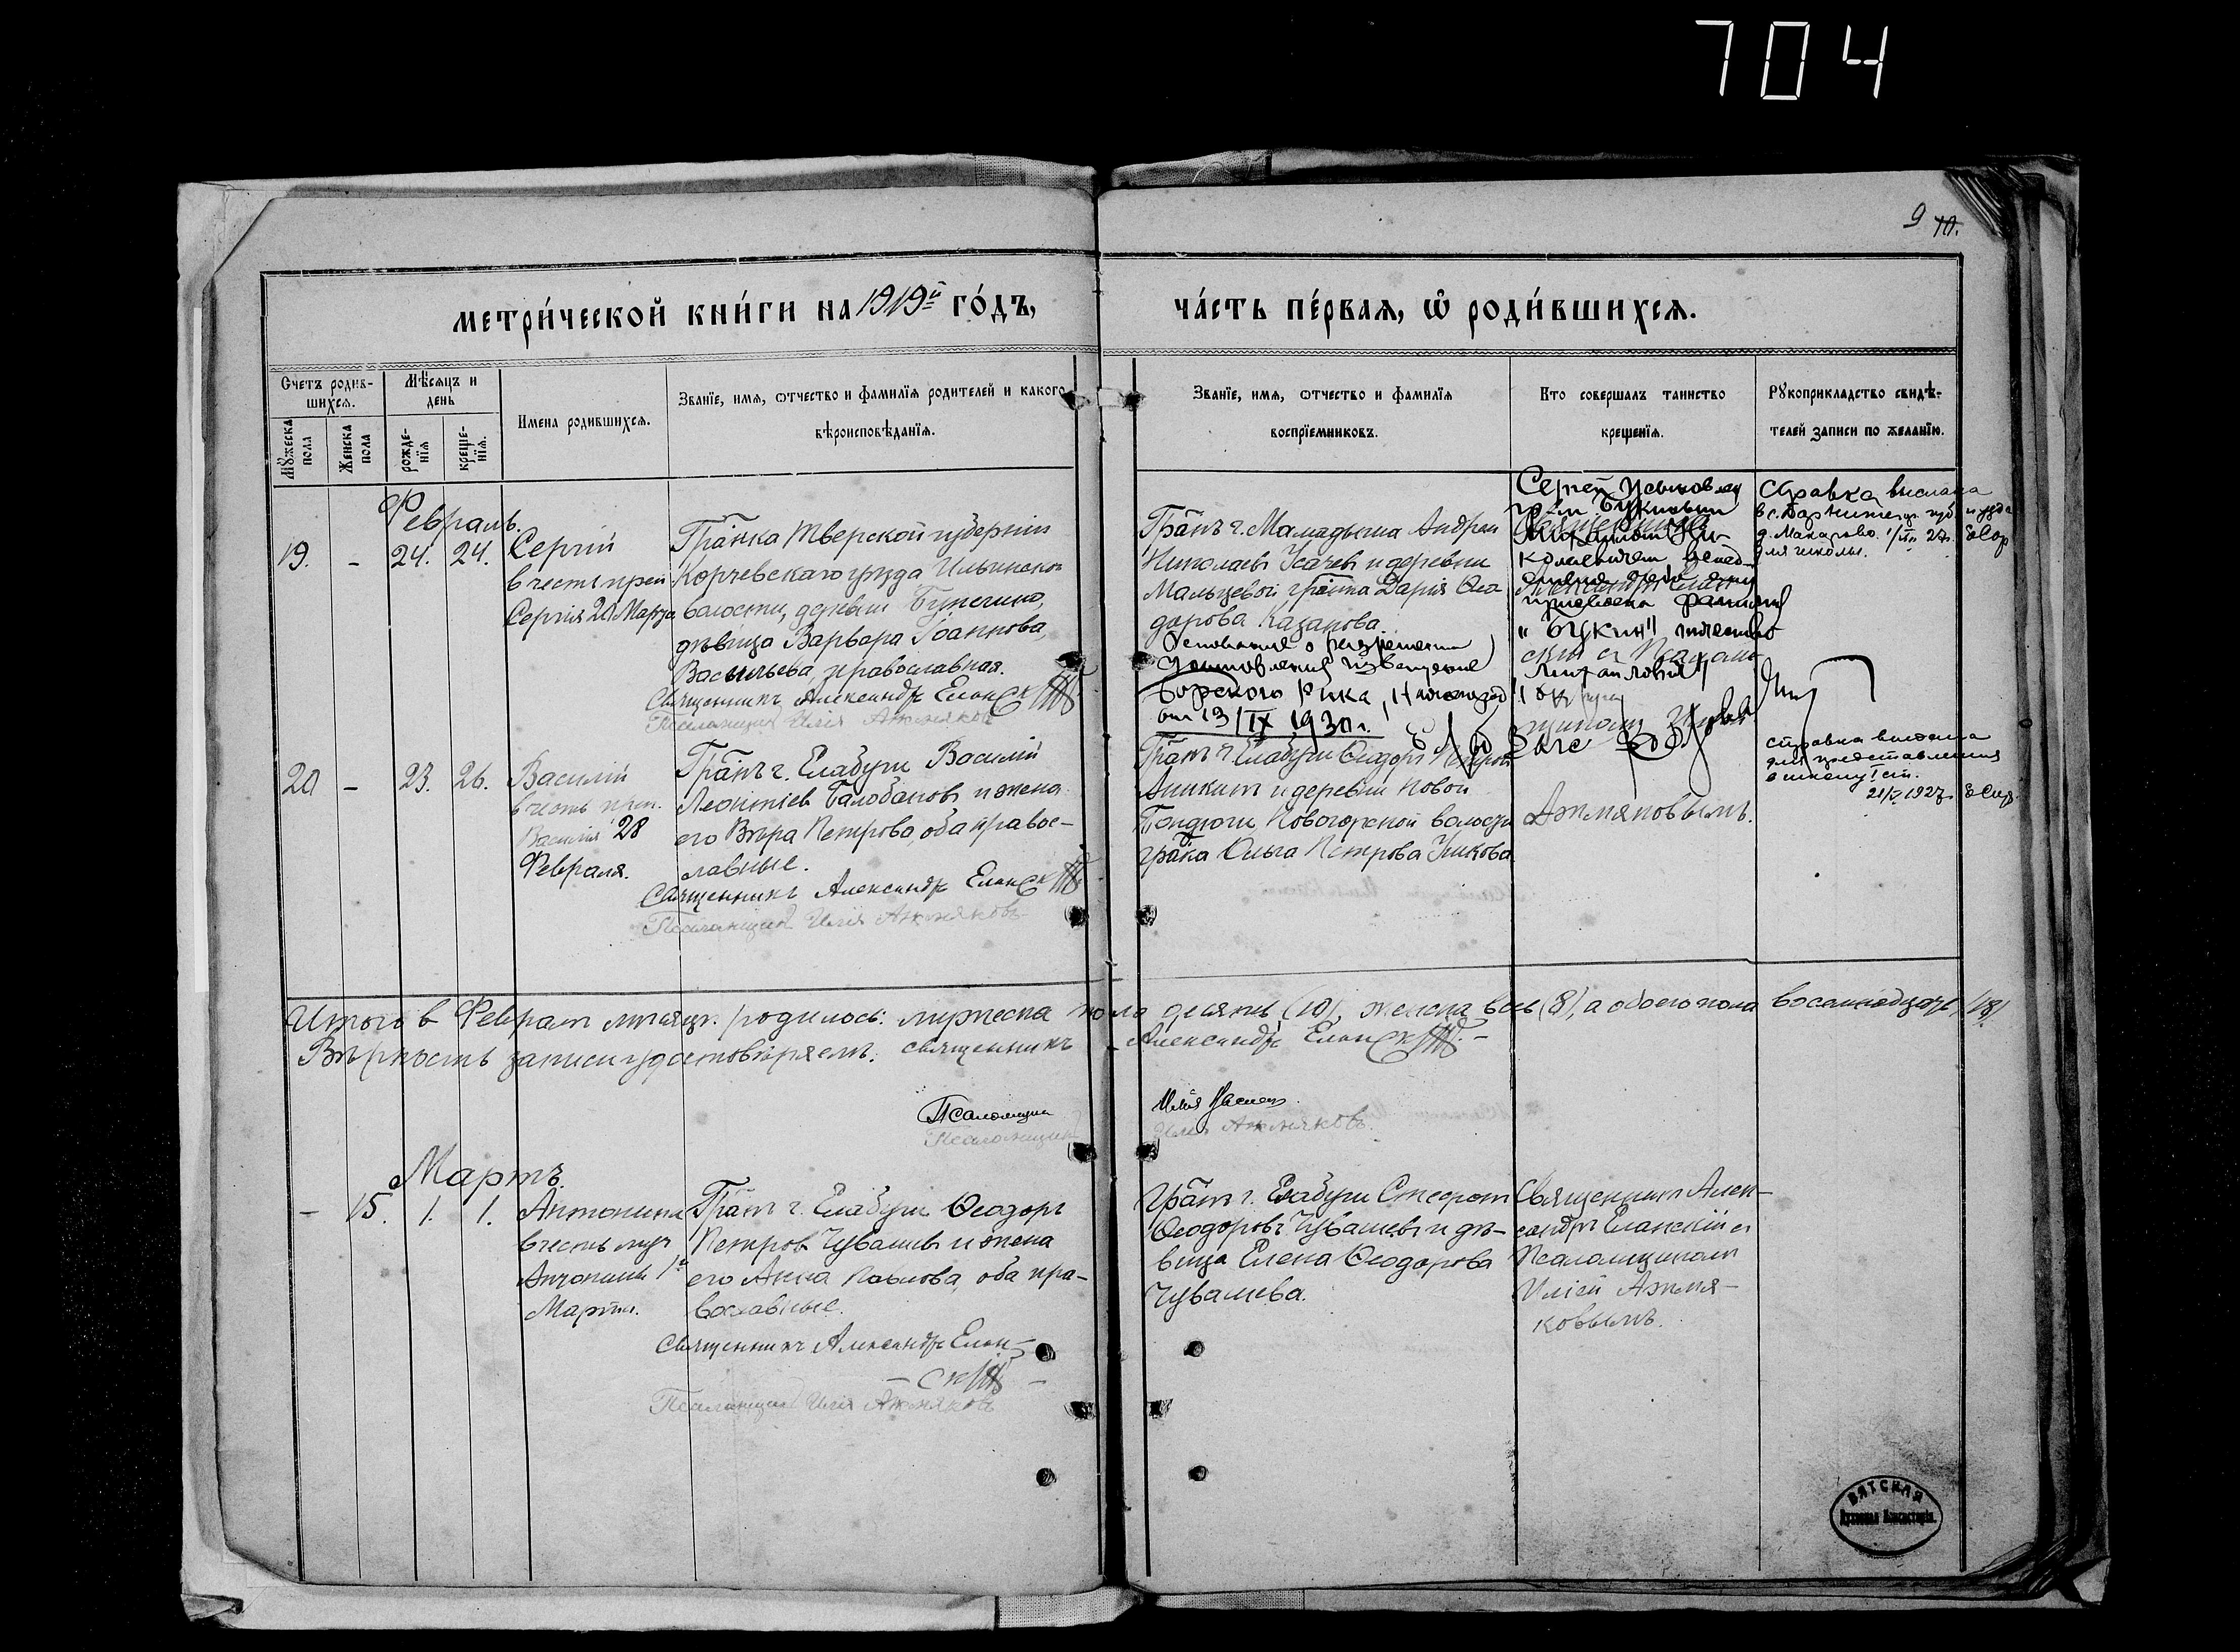 704
9 10.
метри́ческой кни́ги на 1919й го́дъ,
ча́сть пе́рвая, ѡ҆ роди́вшихся.
Счетъ родив-
шихся.
Мѣсяцъ и
день
Мужеска
пола
Женска
пола
рожде-
нїя
креще-
нїя.
Имена родившихся.
Званїе, имя, ѡтчество и фамилїя родителей и какого
вѣроисповѣданїя.
Званїе, имя, ѡтчество и фамилїя
воспрїемниковъ.
Кто совершалъ таинство
крещенїя.
Рукоприкладство свидѣ-
телей записи по желанїю.
Февраль.
19. - 24. 24.
Сергій
в честь преп
Сергія 20 Марта
Гр̃анка Тверской губерніи
Корчевскаго уѣзда Ильинской
волости, деревни
дѣвица Варвара Іоаннова
Васильева, православная.
Священникъ Александръ Еланскій
Псаломщик Илія Ажмяков
Гр̃анъ г. Мамадыша Андрей
Николаевъ Усачевъ и деревни
Мальцевой гр̃анка Дарія Ѳео
дорова Казанова
Основание о разрешении
усыновления извещение
Борского Рика, Нижегород
от 13/IX 1930 г.
Сергей усыновлен
гр-м Букиным
Михаилом Ни-
колаевичем
присвоена фамилия
"Букин" отчество
Михайлович
округа
Справка выслана
д. Макарово.
для школы.
20 - 23. 26.
Василій
в честь преп.
Василія 28
Февраля.
Гр̃анъ г. Елабуги Василій
Леонтіев Балобановъ и жена
его Вѣра Петрова, оба правос-
лавные.
Священникъ Александръ Еланскій
Псаломщик Илія Ажмяковъ
Гр̃анъ г. Елабуги Ѳеодоръ Петров
Аникинъ и деревни Новой
Новогорской волости
гр̃ака Ольга Петрова
Ажмяковымъ.
справка выслана
для представления
в школу I ст.
21/V 1927 г.
Итого в Феврал мѣсяцѣ родилось: мужеска пола десять (10), женска вос (8), а обоего пола восемнадцать (18).
Вѣрность записи удостовѣряемъ: священникъ Александръ Еланскій. -
Псаломщик
Псаломщик Илія Ажмяковъ.
Мартъ.
- 15. 1. 1.
Антонина
в честь муч
Антонины 1го
Марта.
Гр̃анъ г. Елабуги Ѳеодоръ
Петров Чувашевъ и жена
его Анна Павлова, оба пра-
вославные.
Священникъ Александръ Елан-
- скій -
Псаломщик Илія Ажмяковъ
Гр̃анъ г. Елабуги
Ѳеодоровъ Чувашевъ и дѣ-
вица Елена Ѳеодорова
Чувашева.
Священникъ Алек-
сандръ Еланскій съ
Псаломщикомъ
Иліей Ажмя-
ковымъ.
ВЯТСКАЯ
Духовная Консисторія.